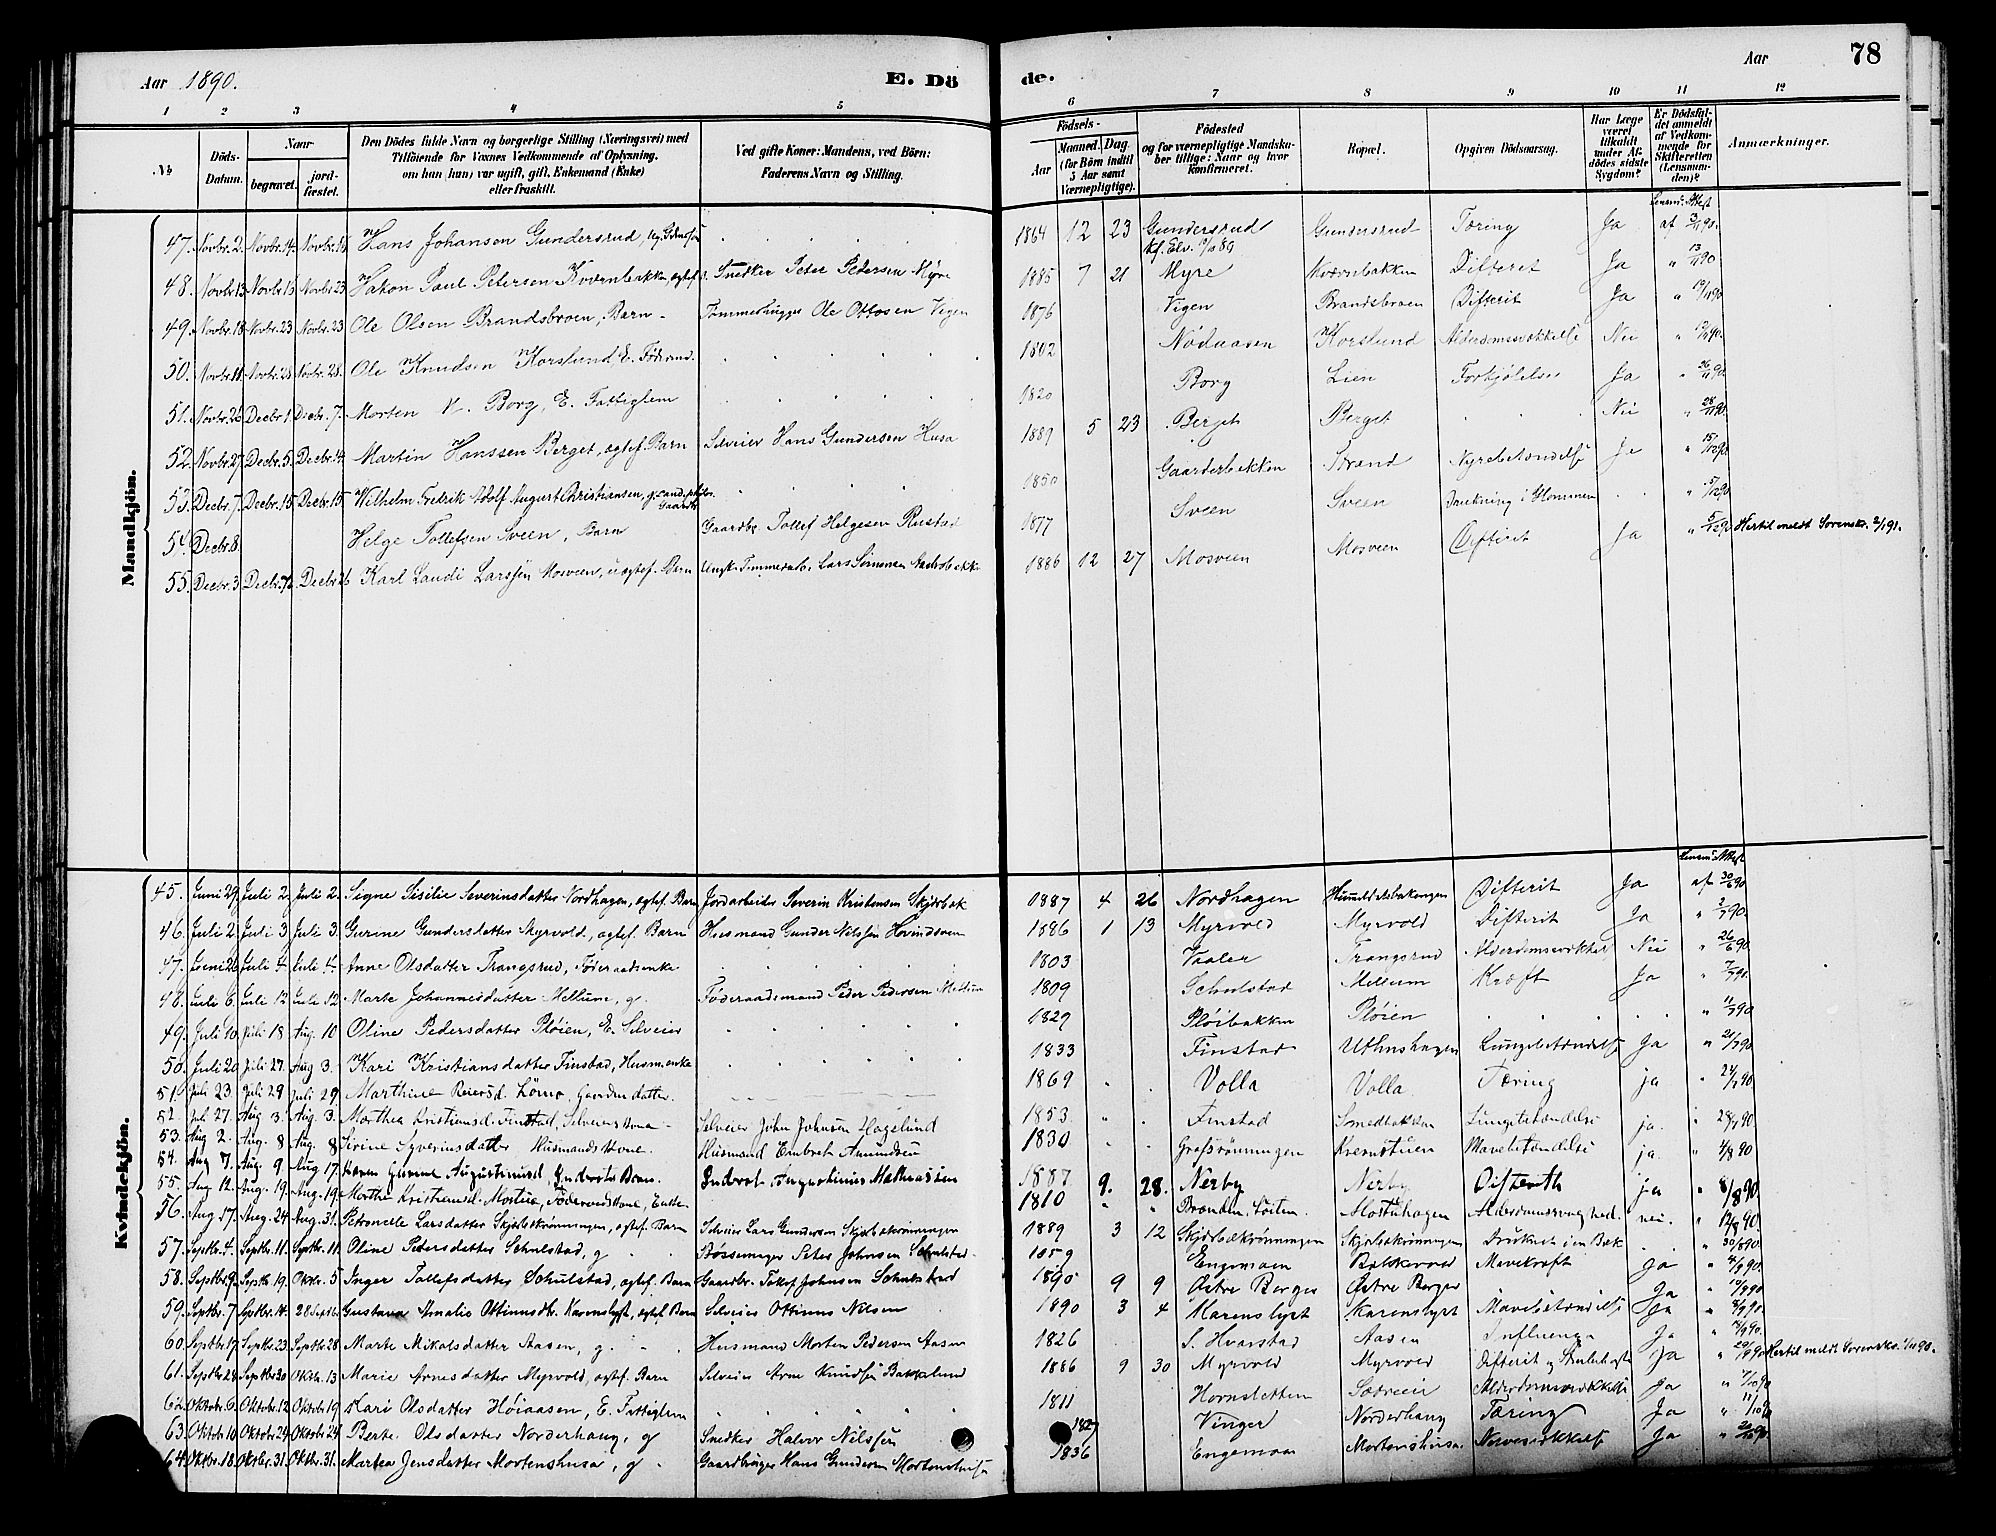 Aar 1890. E. Dö de. Aar 78
1 2 3 4 5 6 7 8 9 10 11 12
№
Döds-Datum.
Naar
begravet.
jord-fæstet.
Den Dödes fulde Navn og borgerlige Stilling (Næringsvei) med
Tilföiende for Voxnes Vedkommende af Oplysning,
om han (hun) var ugift, gift, Enkemand (Enke)
eller fraskilt.
Ved gifte Koner: Mandens, ved Börn:
Faderens Navn og Stilling.
Födsels-
Aar
Maaned. Dag.
(for Börn indtil
5 Aar samt
Værnepligtige).
Födested
og for værnepligtige Mandska-
ber tillige: Naar og hvor
konfirmeret.
Bopæl.
Opgiven Dödsaarsag.
Har Læge
været
tilkaldt
under Af-
dödes sidste
Sygdom?
Er Dödsfal-
det anmeldt
af Vedkom-
mende for
Skifteretten
(Lensman-
den)?
Anmærkninger.
Mandkjön.
Lensm. Attest
47. Novbr. 2. Novbr. 14. Novbr. 16 Hans Johansen Gundersrud, 1864 12 23 Gundersrud Gundersrud Tæring Ja af 3/11 90.
Kf. Elv. 89
48. Novbr. 13. Novbr. 15 Novbr. 23 Hakon Paul Petersen Kværnbakken, Snedker Peter Pedersen Myre 1885 7 21 Myre Kværnbakken Difterit Ja " 13/11 90
49. Novbr. 18. Novbr. 23 Novbr. 23 Ole Olsen Brandsbroen, Barn - Tømmerhugger Ole Ottosen Vigen 1876 Vigen Brandsbroen Difterit Ja " 19/11 90
50. Novbr. 18. Novbr. 28 Novbr. 28. Ole Knudsen Korslund, E. Føderaad. 1802 Nødaasen Korslund Alderdomssvækkelse Nei "
51. Novbr. 26 Decbr. 1. Decbr. 7. Morten N. Borg, E. Fattiglem 1820 Borg Lien Forkjølelse Ja " 26/11 90.
52. Novbr. 27. Decbr. 5. Decbr. 14. Martin Hanssen Berget, ægtef. Barn Selveier Hans Gundersen Husa 1889 5 23 Berget Berget Nei " 28/11 90.
53. Decbr. 7. Decbr. 15 Decbr. 15. Wilhelm Fredrik Adolf August Christiansen, 1850 Gaarderbakken Strand Nyrebetændelse Ja " 15/12 90
54. Decbr. 8. Helge Tollefsen Sveen, Barn Gaardbr. Tollef Helgesen Rustad 1877 Sveen Sveen Drukning i Glommen " 5/12 90
55. Decbr. 3 Decbr. 12. Decbr. 26 Karl Laudi Larssen Mosveen, uægtef. Barn Ungk. Tømmerarb. Lars Simensen 1886 12 27 Mosveen Mosveen Difterit Ja " 5/12 90 Hertil meldt Sorenskr. 2/1 91.
Kvindekjön.
Lensm. Attest
45. Juni 29. Juli 2. Juli 2. Signe Sisilie Severinsdatter Nordhagen, ægtef. Barn Jordarbeider Severin Kristensen Skjærbæk 1887 4 26 Nordhagen Difterit Ja af 30/6 90
46. Juli 2. Juli 3 Juli 3. Gurine Gundersdatter Myrvold, ægtef. Barn Husmand Gunder Nilssen Hvindsveen 1886 1 13 Myrvold Myrvold Difterit Ja " 2/7 90.
47. Juni 26 Juli 4. Juli 4. Anne Olsdatter Trangsrud, Føderaadsenke 1803 Vaaler Trangsrud Alderdomssvækkelse Nei " 26/6 90.
48. Juli 6. Juli 12 Juli 12 Marte Johannesdatter Mellum, g. Føderaadsmand Peder Pedersen Mellum 1809 Schulstad Mellum Kræft Ja " 7/7 90.
49. Juli 10. Juli 18 Aug. 10 Oline Pedersdatter Pløien, E. Selveier 1829 Pløibakken Pløien " 11/7 90
50. Juli 20 Juli 27. Aug 3. Kari Kristiansdatter Finstad, Husm.enke 1833 Finstad Uthushagen Lungebetændelse Ja " 21/7 90
51. Juli 23. Juli 29 Juli 29 Marthine Reiersd. Lømo, Gaardm.datter. 1869 Volla Volla Tæring ja " 24/7 90
52. Juli 27. Aug 3. Aug. 3. Marthea Kristiansd. Finstad, Selveierskone - Selveier John Johnsen Hagelund 1853 Finstad Smedbakken Lungebetændelse ja. " 28/7 90
53. Aug 2. Aug. 8 Aug. 8 Sirine Syverinsdatter Husmandskone. Husmand Embret Amundsen 1830 Græsrønningen Kvernstuen Mavebetændelse ja. " 4/8 90
54. Aug 7. Aug. 9. Aug 17 Karen Gurine Augustinusd, Indersts Barn. Inderst Augustinus Mathiassen 1887 9. 28. Nerby Nerby Difterith ja " 8/8 90.
55. Aug 12. Aug. 19. Aug. 19. Marthe Kristiansd. Mostue, Føderaadskone, Enke 1810 Brænden, Løiten. Mostuhagen Alderdomssvaghed. nei. " 12/8 90.
56. Aug 17. Aug. 24 Aug. 31. Petronele Larsdatter Skjærbækrønningen, ægtef. Barn Selveier Lars Gundersen Skjærbækrønningen 1889 3 12 Skjærbækrønningen Skjærbækrønningen Druknet i en Bæk " 30/8 90.
57. Septbr. 4. Septbr. 11. Septbr. 11. Oline Petersdatter Schulstad, g Bøssemager Peter Johnsen Schulstad 1859 Engemoen Bakkevold Mavekræft Ja " 4/9 90.
58. Septbr. 9. Septbr. 19. Oktbr. 5 Inger Tollefsdatter Schulstad, ægtef. Barn Gaardbr. Tollef Johnsen Schulstad 1890 9 9 Østre Berger Østre Berger Ja " 10/9 90
59. Septbr. 7 Septbr. 14. 28 Septbr. Gustava Amalie Ottinusdtr. Karenslyst, ægtef. Barn Selveier Ottinus Nilsen 1890 3 4 Karenslyst Karenslyst Mavebetændelse Ja " 8/9 90.
60. Septbr. 17. Septbr. 23 Septbr. 28 Marte Mikalsdatter Aasen, g. Husmand Morten Pedersen Aasen 1826 S. Hvarstad Aasen Influenza Ja " 18/9 90.
61. Septbr. 28. Septbr. 30 Oktbr. 13 Marie Arnesdatter Myrvold, ægtef. Barn Selveier Arne Knudsen Bakkelund 1886 9 30 Myrvold Myrvold Difterit og Strubehoste Ja " 29/9 90 Hertil meldt Sorenskr. 1/10 90.
62. Oktbr. 6. Oktbr. 12 Oktbr. 19 Kari Olsdatter Høiaasen, E. Fattiglem 1811 Hornsletten Sætreier Alderdomssvækkelse Ja " 7/10 90
63. Oktbr. 10. Oktbr. 24 Oktbr. 24 Berte Olsdatter Norderhaug, g Snedker Halvor Nilssen 1827 Vinger Norderhaug Tæring Ja " 11/10 90
64. Oktbr. 18. Oktbr. 31. Oktbr. 31. Martea Jensdatter Mortenshusa, g. Gaardbruger Hans Gundersen Mortenshusa 1836 Engemoen Mortenshusa Nervesvækkelse Ja "